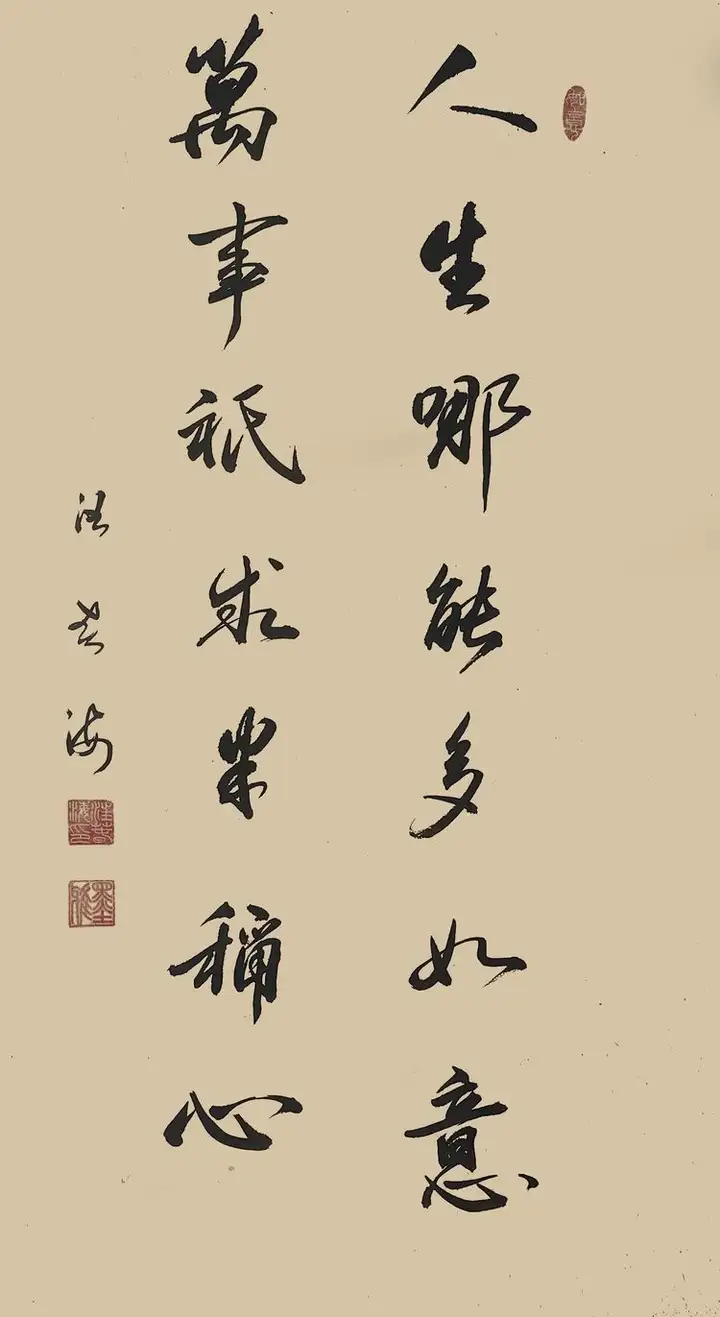 人生哪能多如意
萬事祇求半稱心
海